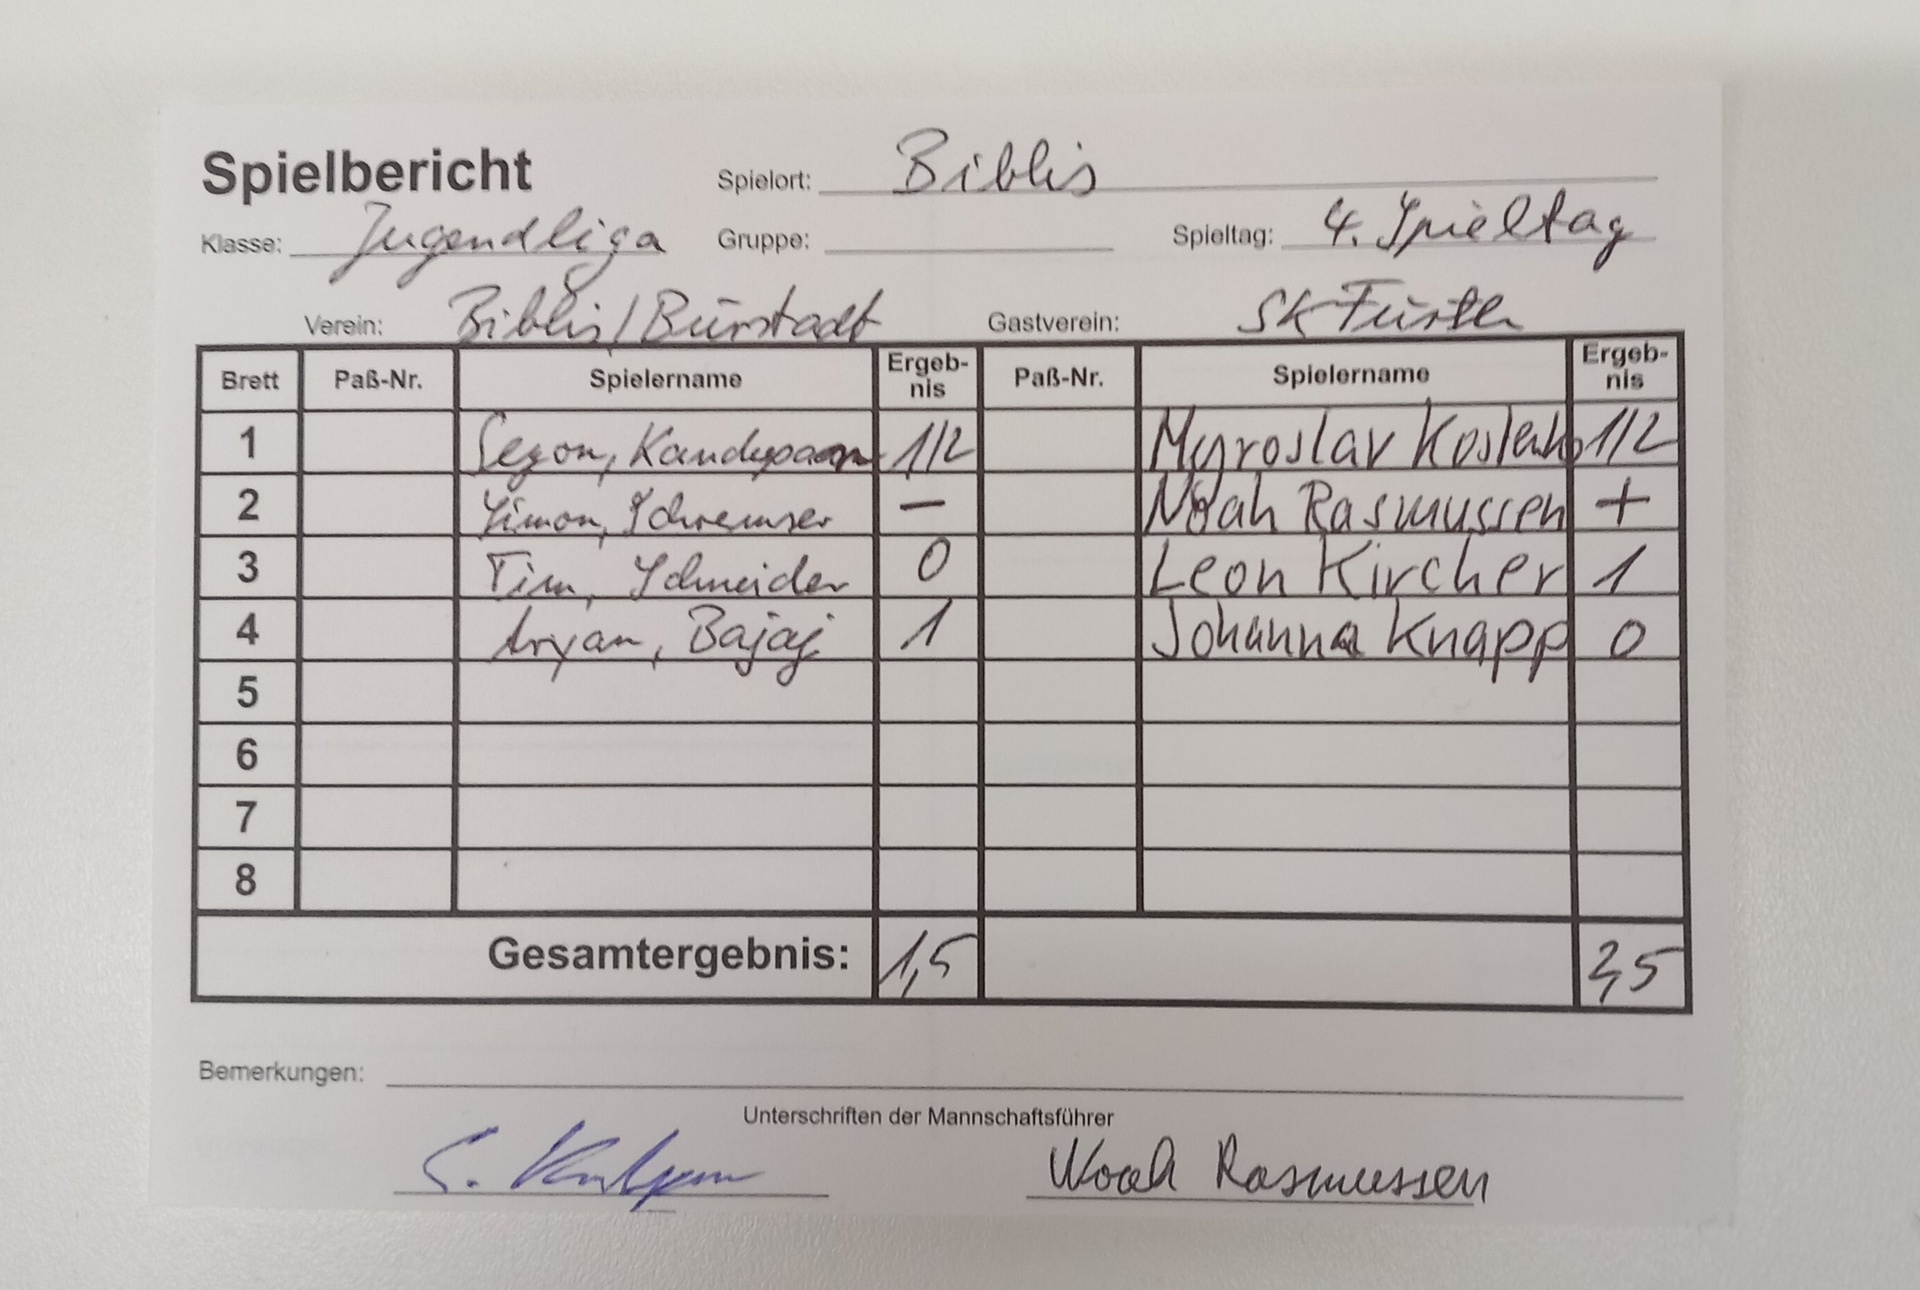 Spielbericht Spielort: Biblis
Klasse: Jugendliga Gruppe: Spieltag: 4. Spieltag
Verein: Biblis/Bürstadt Gastverein: SK Fürth
Brett Paß-Nr. Spielername Ergeb-nis Paß-Nr. Spielername Ergeb-nis
1 1/2 Myroslav 1/2
2 Simon, - Noah Rasmussen +
3 Tim, Schneider 0 Leon Kircher 1
4 Aryan, Bajaj 1 Johanna Knapp 0
5
6
7
8
Gesamtergebnis: 1,5 2,5
Bemerkungen:
Unterschriften der Mannschaftsführer
Noah Rasmussen